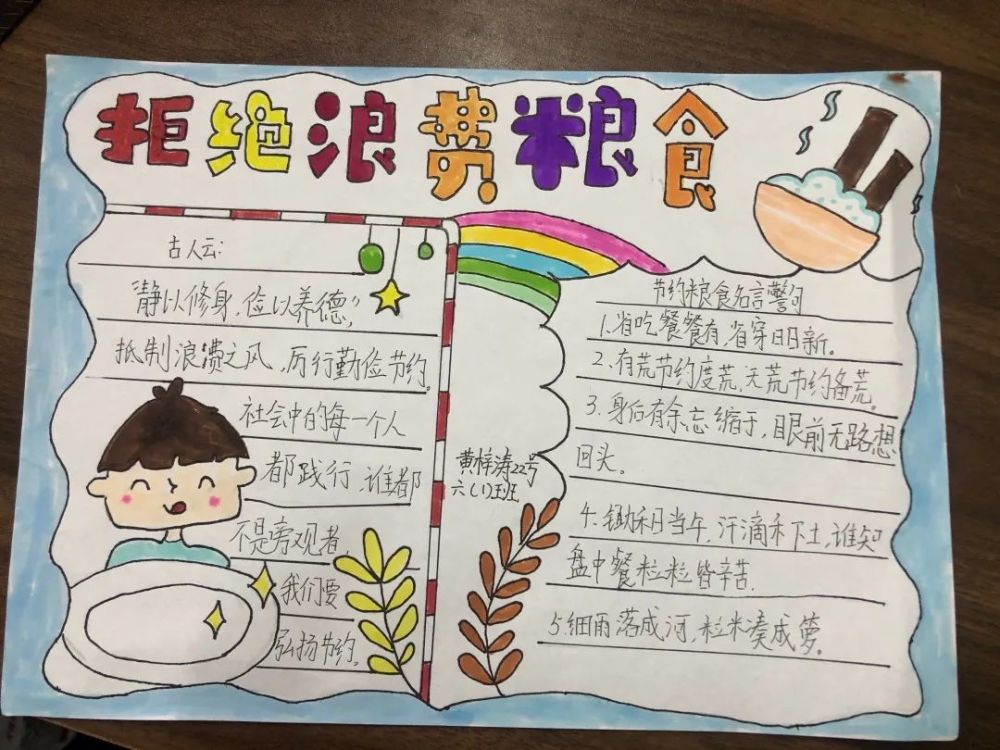 拒绝浪费粮食
古人云:
“静以修身,俭以养德”
抵制浪费之风,厉行勤俭节约。
社会中的每一个人
都践行,谁都
不是旁观者,
我们要
弘扬节约。
黄梓涛22号
六(1)班
节约粮食名言警句
1.省吃餐餐有,省穿日日新。
2.有荒节约度荒,无荒节约备荒。
3.身后有余忘缩手,眼前无路想
回头。
4.锄禾日当午,汗滴禾下土,谁知
盘中餐粒粒皆辛苦.
5.细雨落成河,粒米凑成箩。